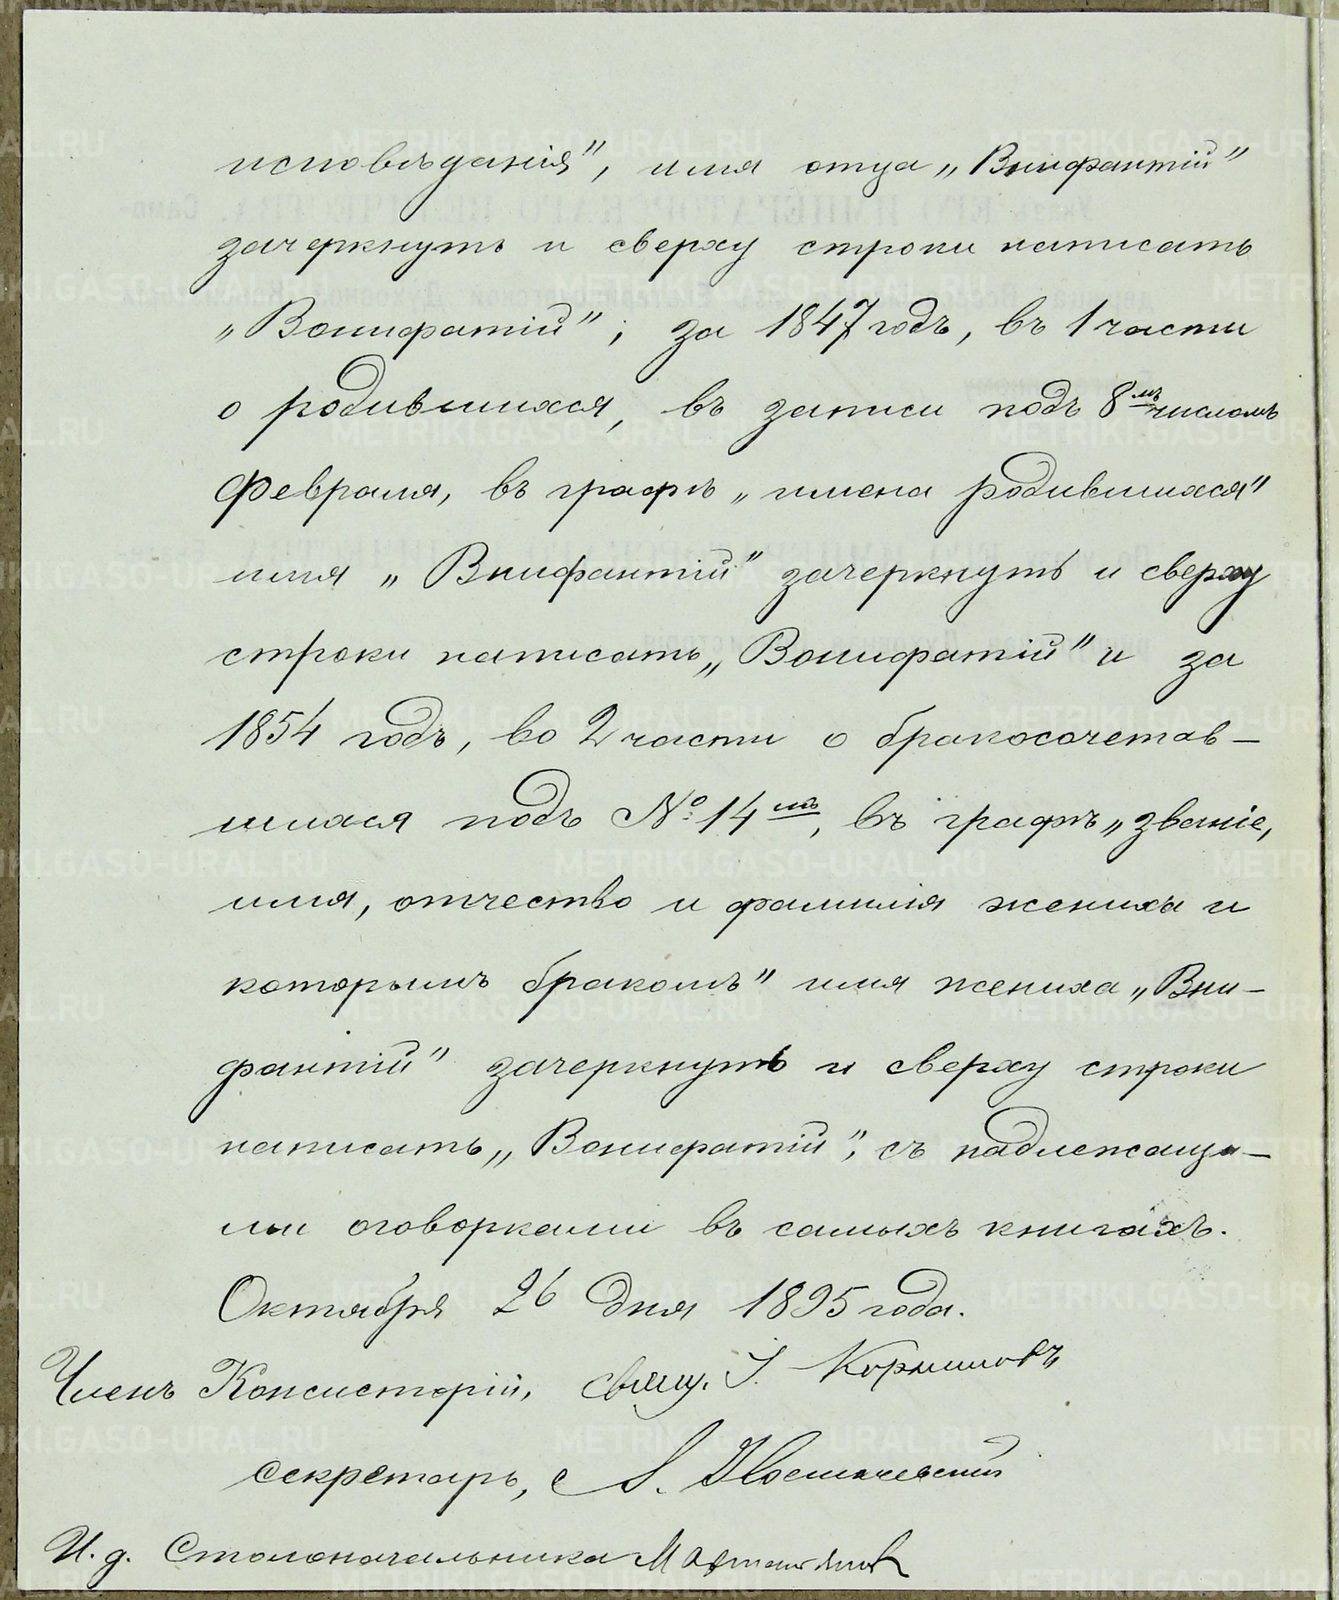 исповѣданія", имя отца „Внифантій"
зачеркнуть и сверху строки написать
„Вонифатій"; за 1847 годъ, въ 1 части
о родившихся, въ записи подъ 8мъ числомъ
Февраля, въ графѣ „имена родившихся"
имя „Внифантій" зачеркнуть и сверху
строки написать „Вонифатій" и за
1854 годъ, во 2 части о бракосочетав-
шихся подъ № 14мъ, въ графѣ „званіе,
имя, отчество и фамилія жениха и
которымъ бракомъ" имя жениха „Вни-
фантій" зачеркнуть и сверху строки
написать „Вонифатій", съ надлежащи-
ми оговорками въ самыхъ книгахъ.
Октября 26 дня 1895 года.
Членъ Консисторіи, свящ. І. Корниловъ
секретарь, А.
И. д. Столоначальника
METRIKI.GASO-URAL.RU